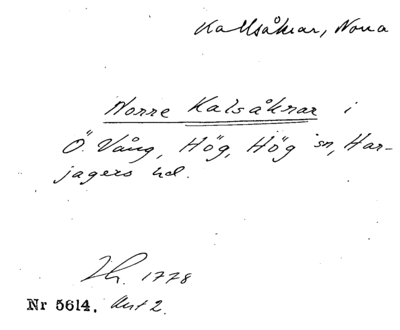 Kallsåkrar, Norra
Norre Kalsåkrar i
Ö. Vång, Hög, Hög sn, Har-
jagers hd.
1778
Nr 5614. Akt 2.